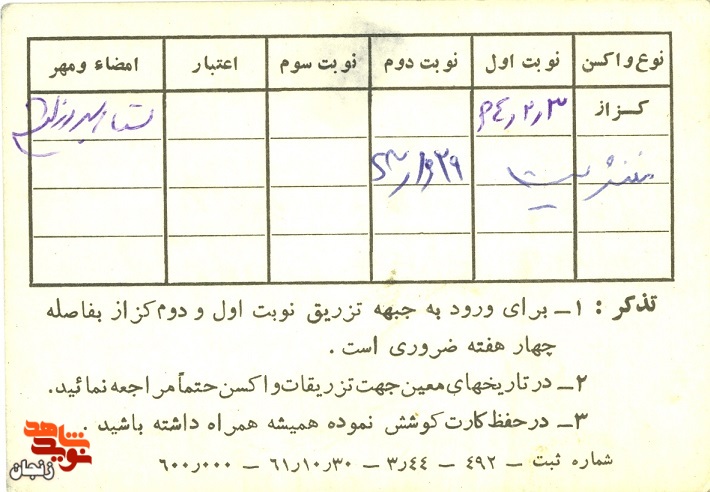 نوع واکسن نوبت اول نوبت دوم نوبت سوم اعتبار امضاء و مهر
کزاز ۶٤٫۲٫۳
مننژیت
تذکر : ۱ــ برای ورود به جبهه تزریق نوبت اول و دوم کزاز بفاصله
چهار هفته ضروری است .
۲ــ در تاریخهای معین جهت تزریقات واکسن حتماً مراجعه نمائید.
۳ــ در حفظ کارت کوشش نموده همیشه همراه داشته باشید .
شماره ثبت ــ ۴۹۲ ــ ۳٫۴۴ ــ ۶۱٫۱۰٫۳۰ ــ ۶۰۰٫۰۰۰
نوید شاهد
زنجان